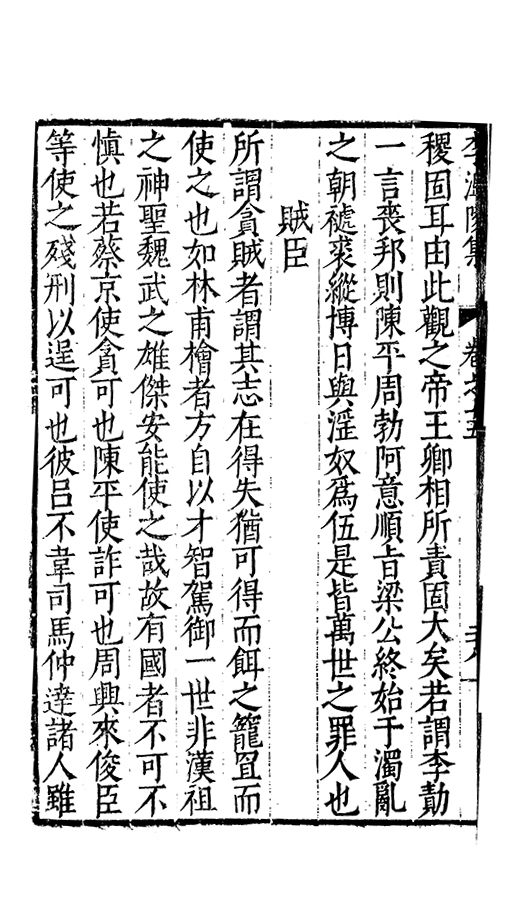 李溫陵集 卷之十五
稷固耳由此觀之帝王卿相所責固大矣若謂李勣
一言喪邦則陳平周勃阿意順旨梁公終始于濁亂
之朝褫裘縱博日與淫奴爲伍是皆萬世之罪人也
賊臣
所謂貪賊者謂其志在得失猶可得而餌之籠罝而
使之也如林甫檜者方自以才智駕御一世非漢祖
之神聖魏武之雄傑安能使之哉故有國者不可不
慎也若蔡京使貪可也陳平使詐可也周興來俊臣
等使之殘刑以逞可也彼呂不韋司馬仲達諸人雖